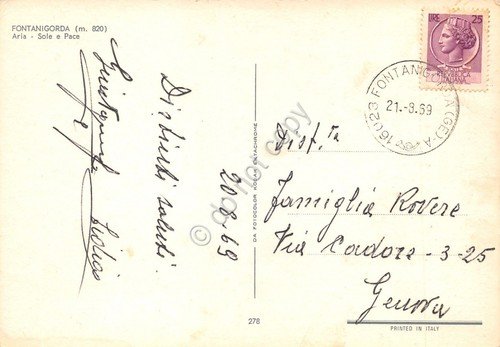 FONTANIGORDA (m. 820)
Aria - Sole e Pace
Distinti saluti.
20-8-69
DA FOTOCOLOR KODAK EKTACHROME
do not copy
278
LIRE 25
REPUBBLICA
ITALIANA
16023 FONTANIGORDA (GE)
21.-8.69
Dist.ta
Famiglia Rovere
Via Cadore - 3-25
Genova
PRINTED IN ITALY